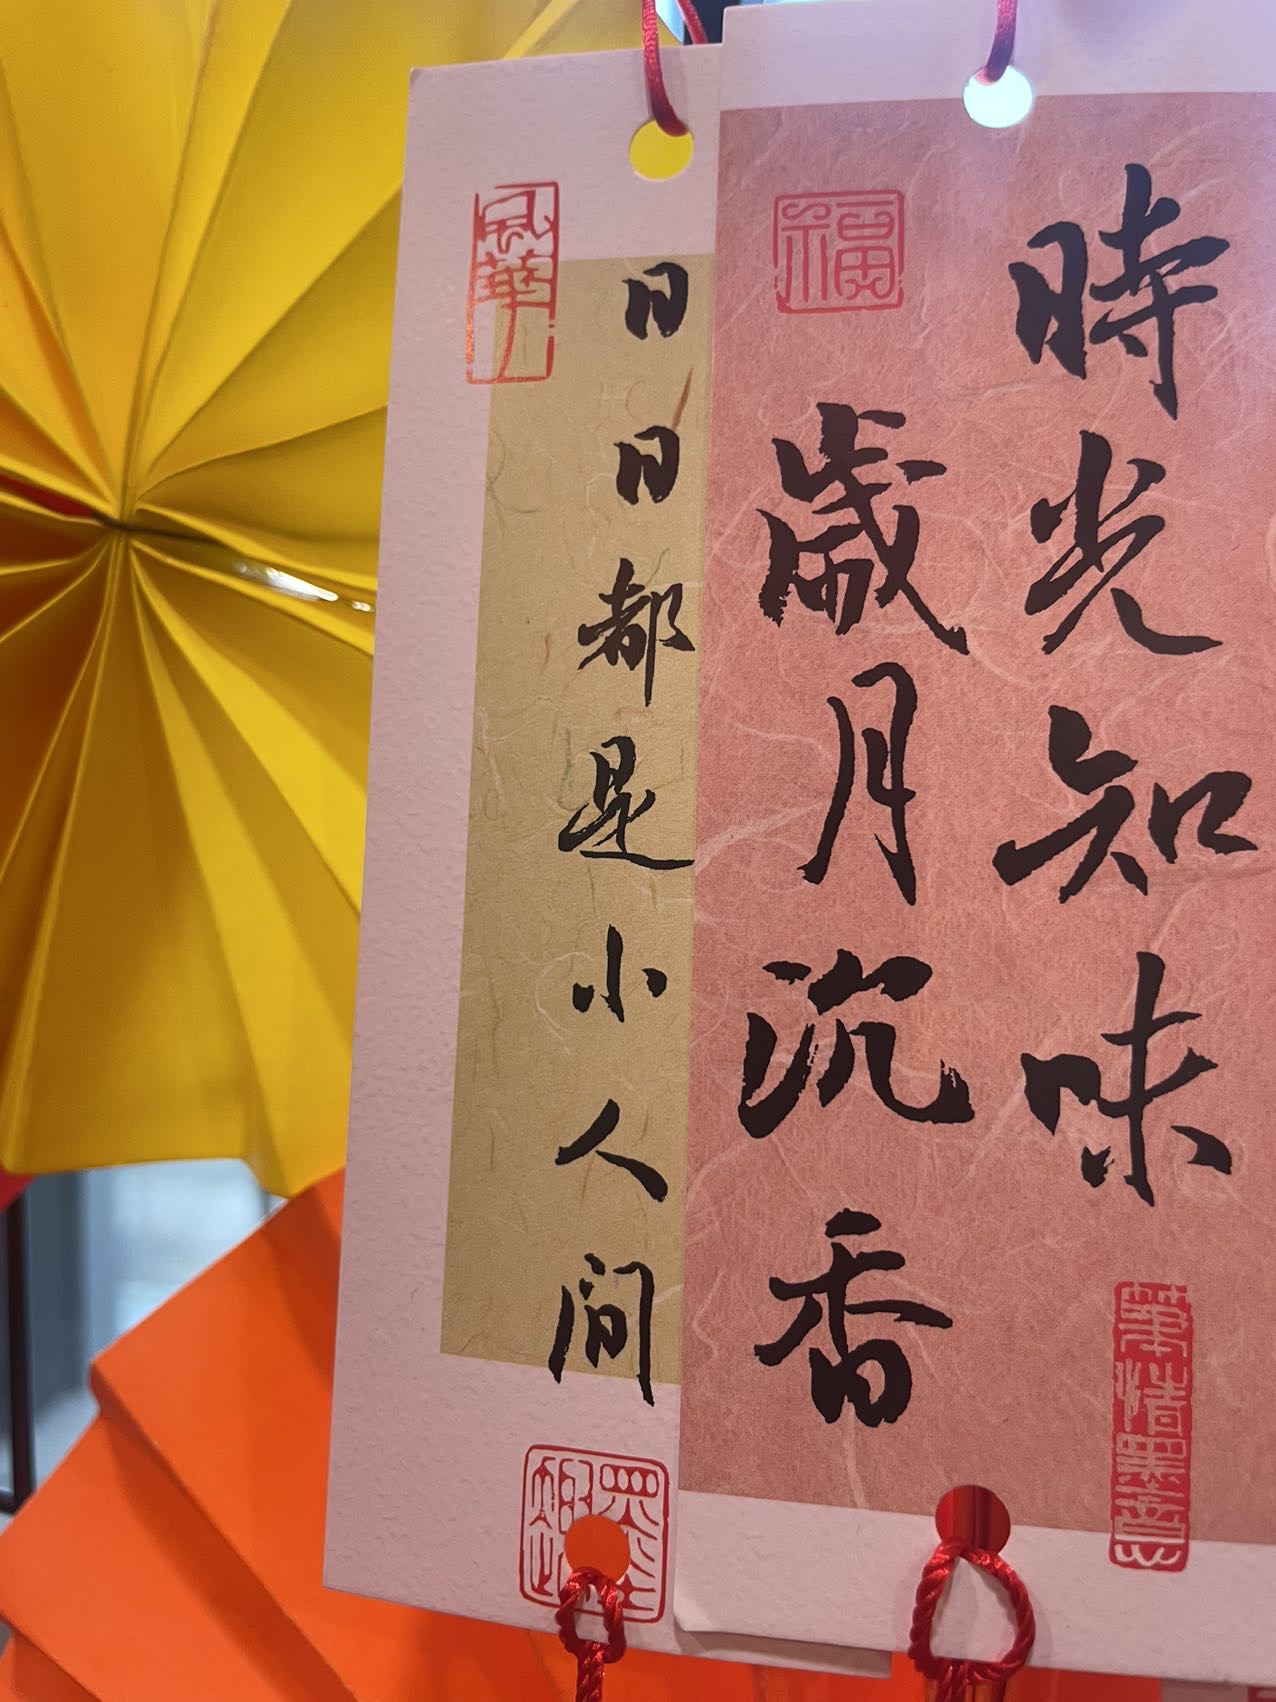 時光知味
歲月沉香
福
筆情墨意
日日都是小人間
風華